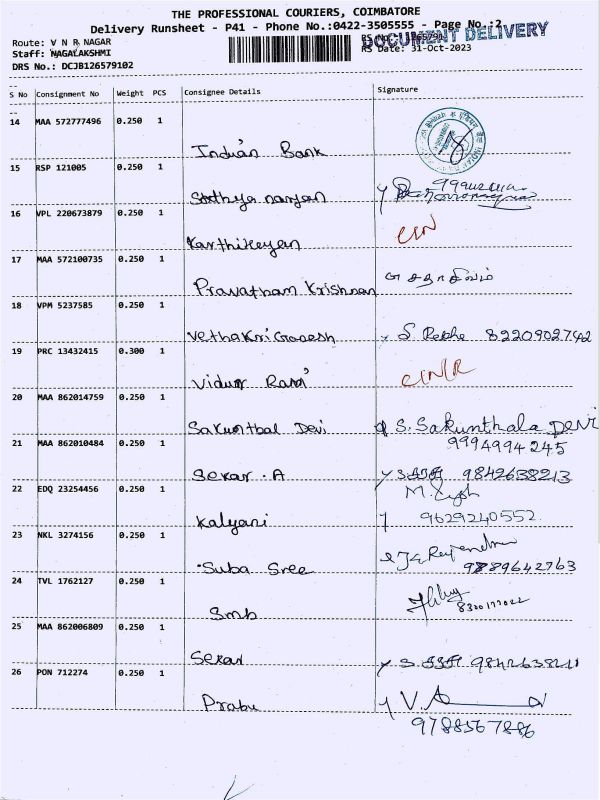 THE PROFESSIONAL COURIERS, COIMBATORE
Delivery Runsheet - P41 - Phone No.:0422-3505555 - Page No.:2
DOCUMENT DELIVERY
Route: V N R NAGAR
Staff: NAGALAKSHMI
RS Date: 31-Oct-2023
DRS No.: DCJB126579102
S No Consignment No Weight PCS Consignee Details Signature
14 MAA 572777496 0.250 1
Indian Bank
15 RSP 121005 0.250 1
Sathya narayan
16 VPL 220673879 0.250 1
Karthikeyan
17 MAA 572100735 0.250 1
Pravatham Krishnan
18 VPM 5237585 0.250 1
Vethakri Ganesh S Rekha 8220902742
19 PRC 13432415 0.300 1
Vidun Ram
20 MAA 862014759 0.250 1
Sakunthal Devi S. Sakunthala Devi
9994994245
21 MAA 862010484 0.250 1
Sekar . A 9842638213
22 EDQ 23254456 0.250 1
Kalyani 9629240552
23 NKL 3274156 0.250 1
Suba Sree
24 TVL 1762127 0.250 1
Smb
25 MAA 862006809 0.250 1
Sekar
26 PON 712274 0.250 1
Prabu
9788567886